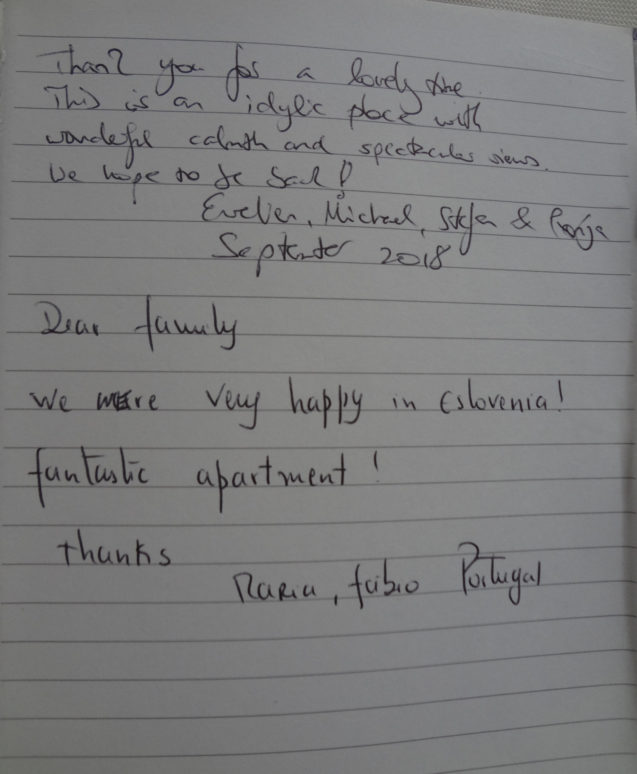 Thank you for a lovely
This is an idylic place with
wonderful and spectacular views.
We hope to be back!
Michael, &
September 2018
Dear family
We were very happy in Eslovenia!
fantastic apartment!
thanks
Maria, fabio Portugal